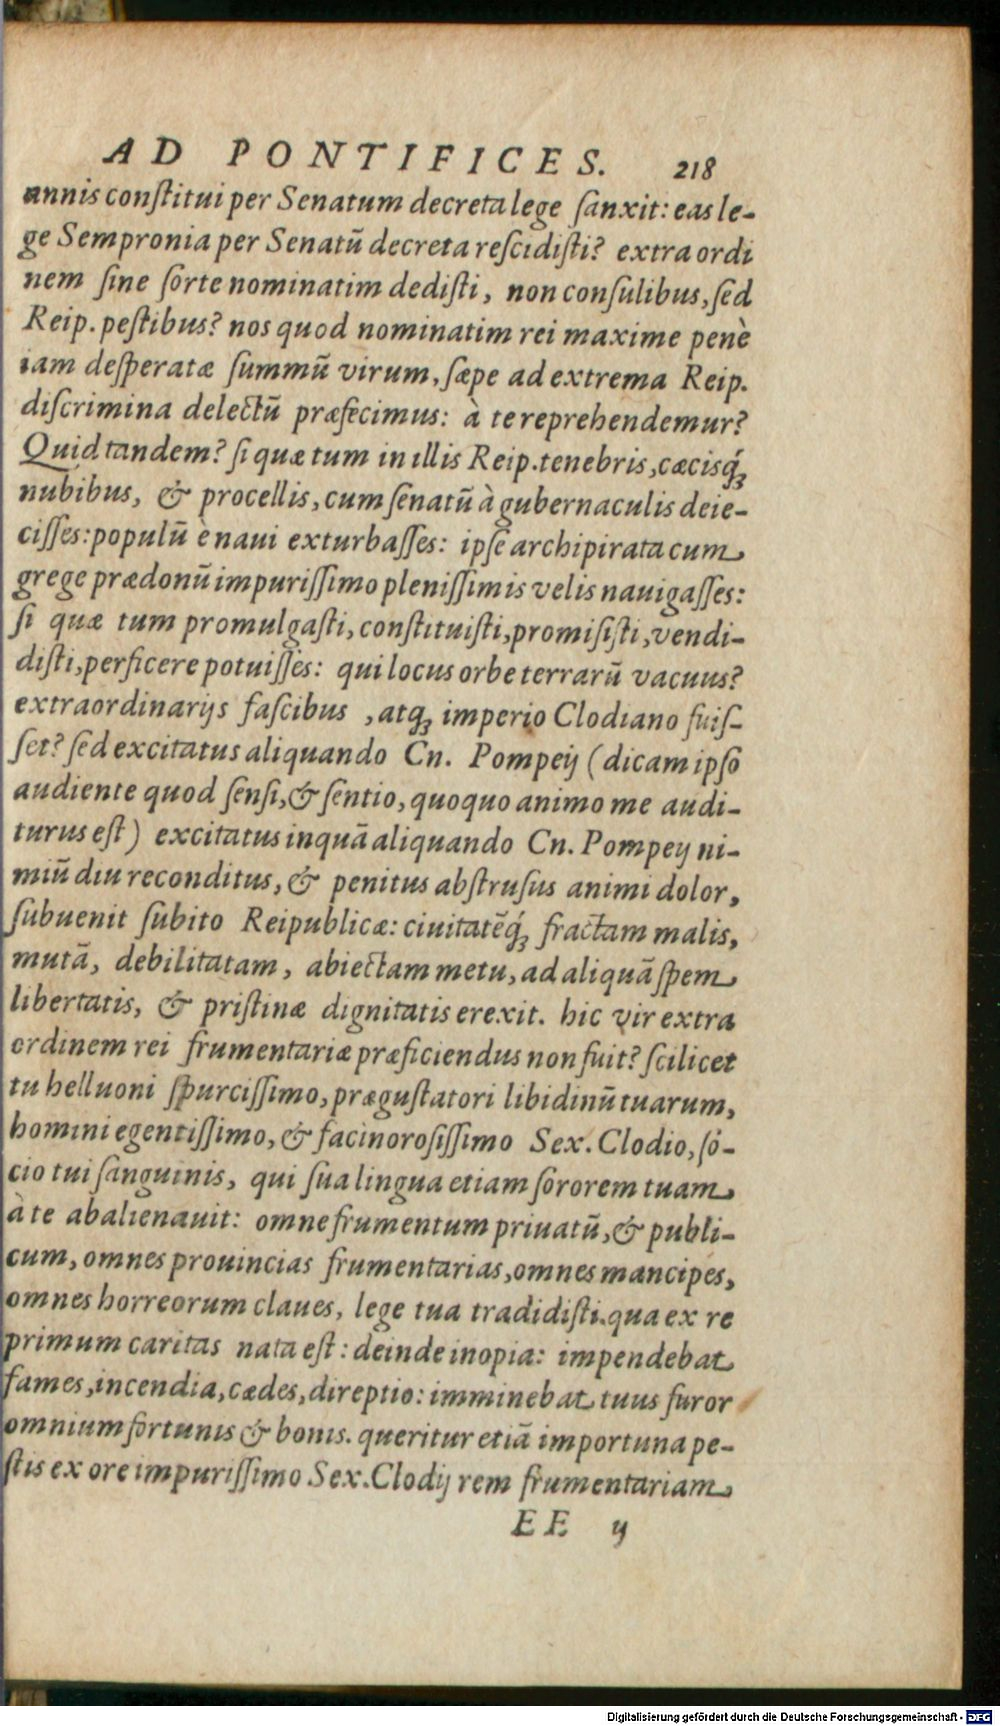 AD PONTIFICES. 218
annis constitui per Senatum decreta lege sanxit: eas le-
ge Sempronia per Senatū decreta rescidisti? extra ordi
nem sine sorte nominatim dedisti, non consulibus, sed
Reip. pestibus? nos quod nominatim rei maxime penè
iam desperatæ summū virum, sæpe ad extrema Reip.
discrimina delectū præfecimus: à te reprehendemur?
Quid tandem? si quæ tum in illis Reip. tenebris, cæcisq́ꝫ
nubibus, & procellis, cum senatū à gubernaculis deie-
cisses: populū è naui exturbasses: ipse archipirata cum
grege prædonū impurissimo plenissimis velis nauigasses:
si quæ tum promulgasti, constituisti, promisisti, vendi-
disti, perficere potuisses: qui locus orbe terrarū vacuus?
extraordinarijs fascibus , atqꝫ imperio Clodiano fuis-
set? sed excitatus aliquando Cn. Pompeij (dicam ipso
audiente quod sensi, & sentio, quoquo animo me audi-
turus est) excitatus inquā aliquando Cn. Pompeij ni-
miū diu reconditus, & penitus abstrusus animi dolor,
subuenit subito Reipublicæ: ciuitatēq́ꝫ fractam malis,
mutā, debilitatam, abiectam metu, ad aliquā spem
libertatis, & pristinæ dignitatis erexit. hic vir extra
ordinem rei frumentariæ præficiendus non fuit? scilicet
tu helluoni spurcissimo, prægustatori libidinū tuarum,
homini egentissimo, & facinorosissimo Sex. Clodio, so-
cio tui sanguinis, qui sua lingua etiam sororem tuam
à te abalienauit: omne frumentum priuatū, & publi-
cum, omnes prouincias frumentarias, omnes mancipes,
omnes horreorum claues, lege tua tradidisti. qua ex re
primum caritas nata est: deinde inopia: impendebat
fames, incendia, cædes, direptio: imminebat tuus furor
omnium fortunis & bonis. queritur etiā importuna pe-
stis ex ore impurissimo Sex. Clodij rem frumentariam
EE ij
Digitalisierung gefördert durch die Deutsche Forschungsgemeinschaft - DFG